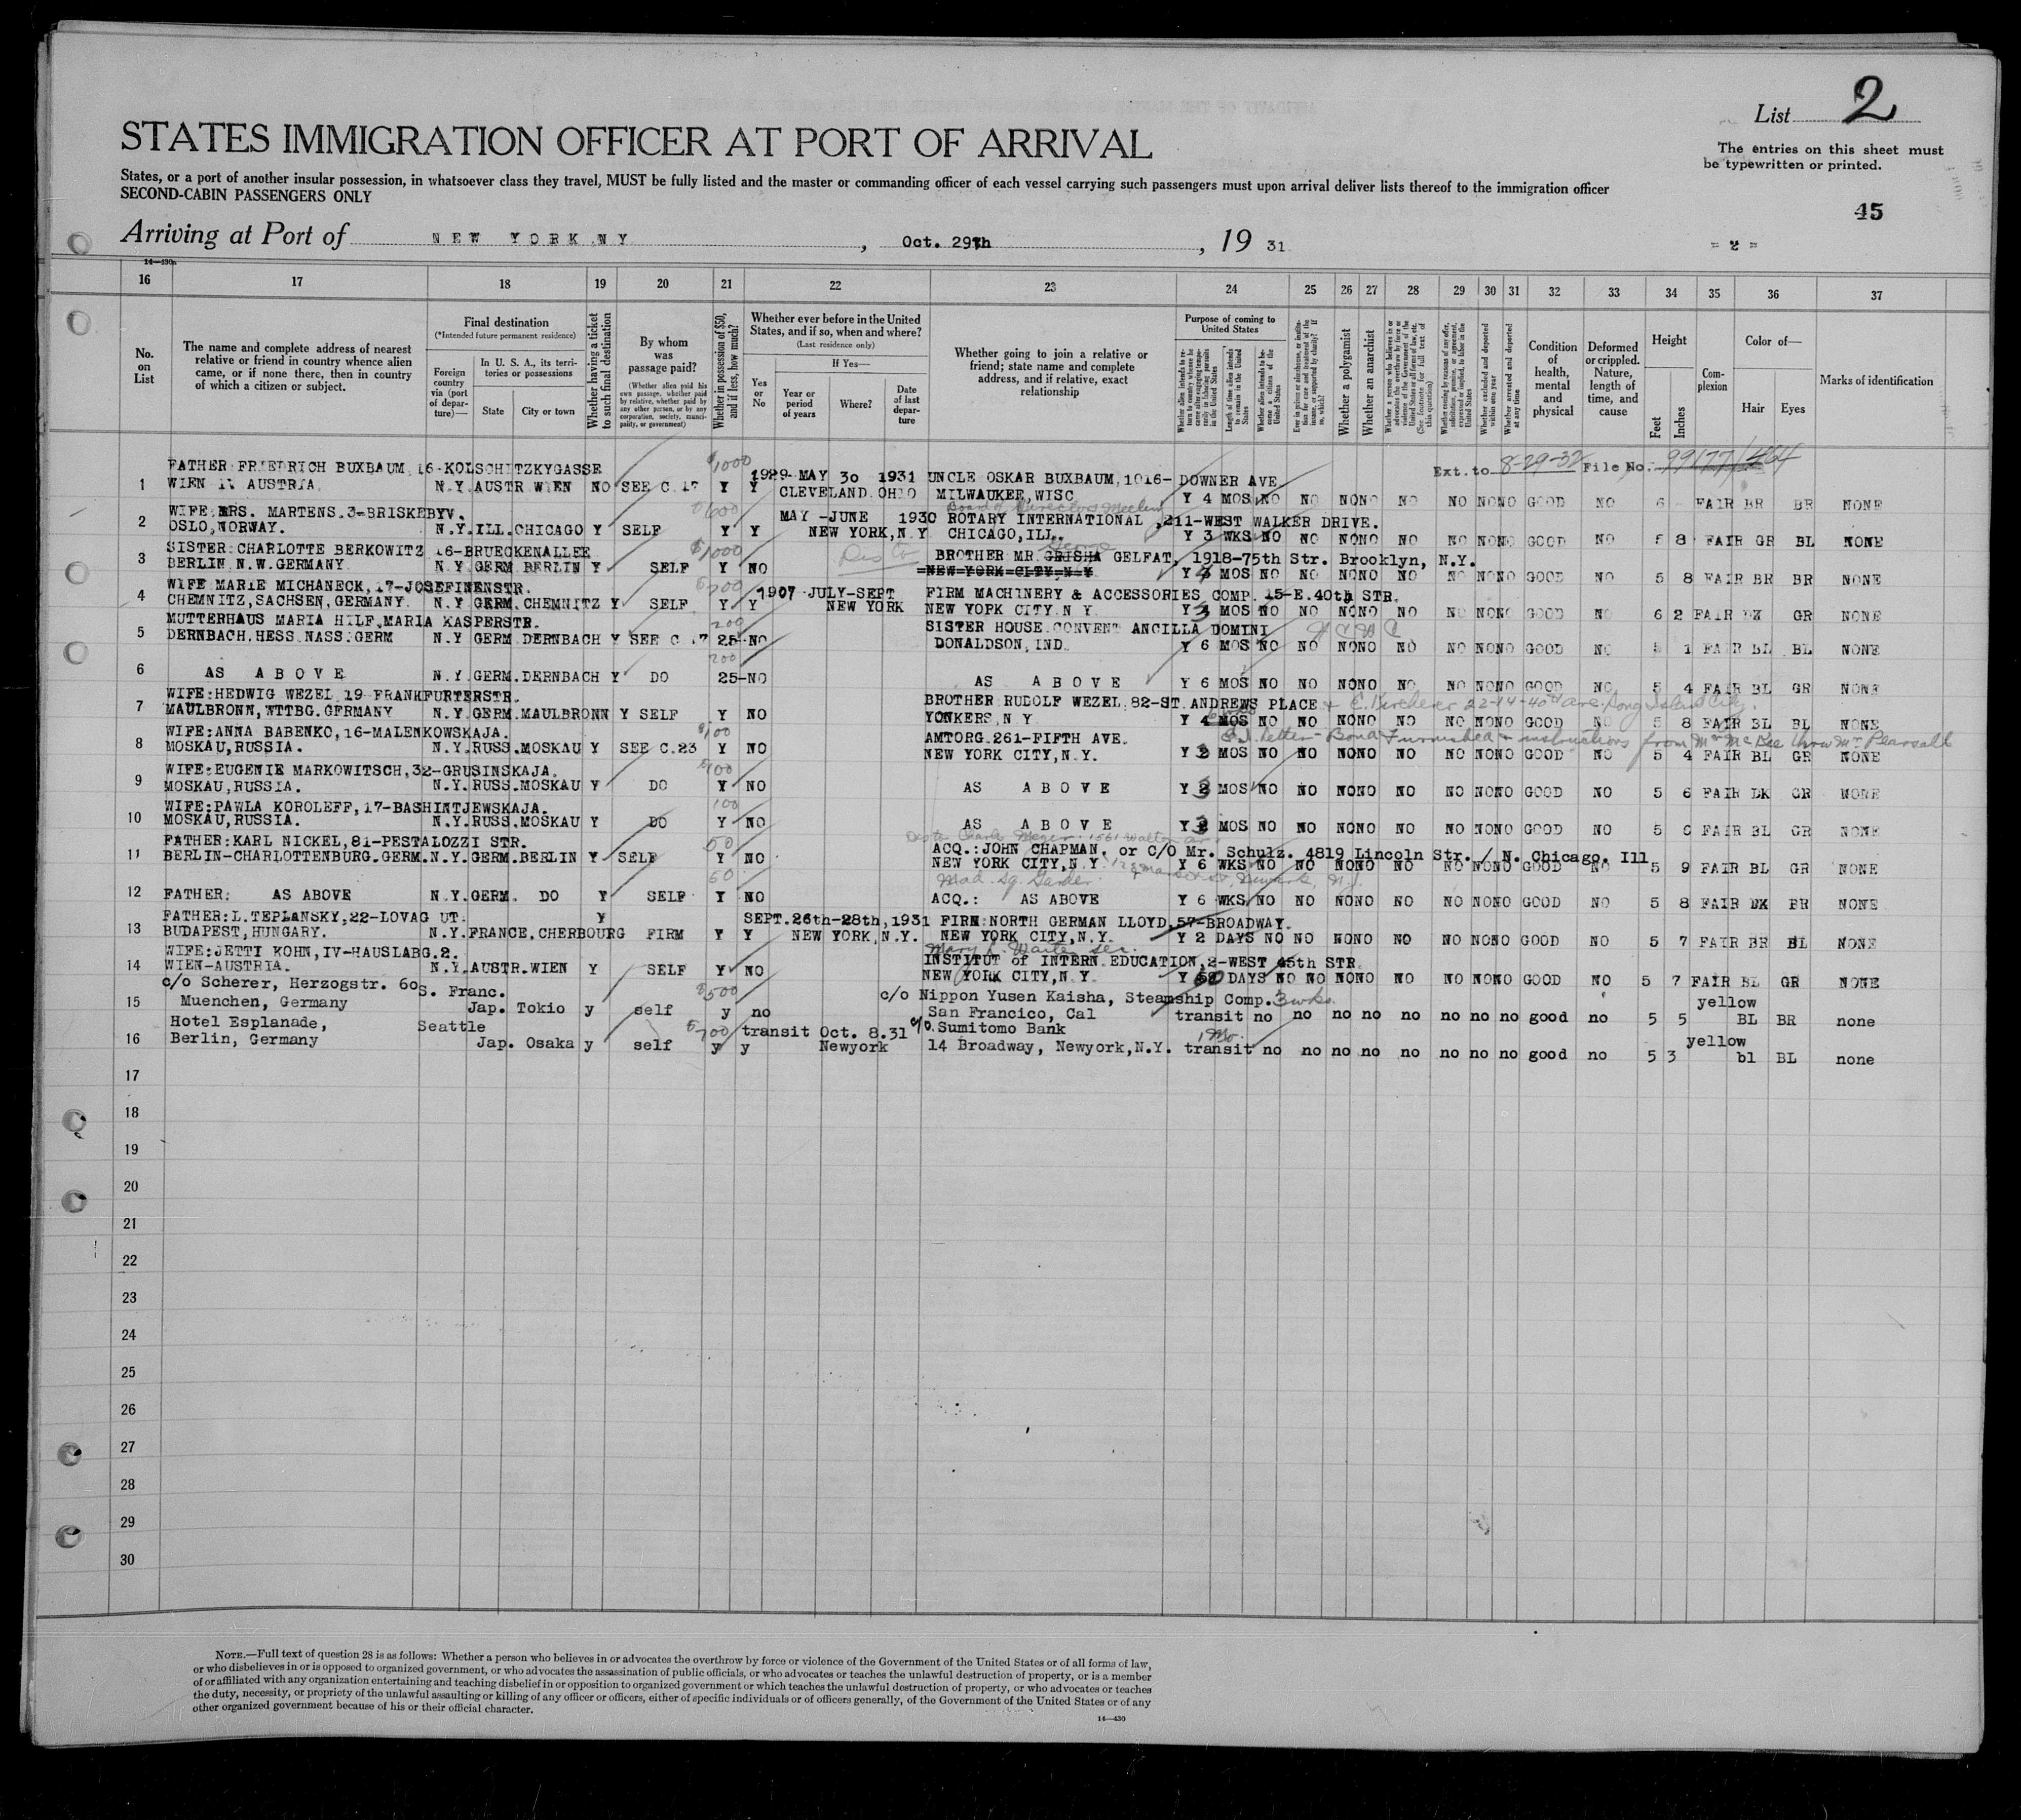 List 2
STATES IMMIGRATION OFFICER AT PORT OF ARRIVAL
The entries on this sheet must
be typewritten or printed.
States, or a port of another insular possession, in whatsoever class they travel, MUST be fully listed and the master or commanding officer of each vessel carrying such passengers must upon arrival deliver lists thereof to the immigration officer
SECOND-CABIN PASSENGERS ONLY
45
Arriving at Port of NEW YORK NY, Oct. 29th, 19 31
- 2 -
14-430a
16 17 18 19 20 21 22 23 24 25 26 27 28 29 30 31 32 33 34 35 36 37
No. on List
The name and complete address of nearest relative or friend in country whence alien came, or if none there, then in country of which a citizen or subject.
Final destination
(*Intended future permanent residence)
Foreign country via (port of departure)—
In U. S. A., its territories or possessions
State
City or town
Whether having a ticket to such final destination
By whom was passage paid?
(Whether alien paid his own passage, whether paid by relative, whether paid by any other person, or by any corporation, society, municipality, or government)
Whether in possession of $50, and if less, how much?
Whether ever before in the United States, and if so, when and where?
(Last residence only)
Yes or No
If Yes—
Year or period of years
Where?
Date of last departure
Whether going to join a relative or friend; state name and complete address, and if relative, exact relationship
Purpose of coming to United States
Length of time alien intends to remain in the United States
Whether alien intends to become a citizen of the United States
Whether a polygamist
Whether an anarchist
Whether excluded and deported within one year
Whether arrested and deported at any time
Condition of health, mental and physical
Deformed or crippled. Nature, length of time, and cause
Height
Feet
Inches
Complexion
Color of—
Hair
Eyes
Marks of identification
FATHER FRIEDRICH BUXBAUM 16-KOLSCHITZKYGASSE $1000 1929 MAY 30 1931 UNCLE OSKAR BUXBAUM, 1016- DOWNER AVE Ext. to 8-29-32 File No. 99177/464
1 WIEN IV AUSTRIA N.Y. AUSTR WIEN NO SEE C.17 Y Y CLEVELAND OHIO MILWAUKEE, WISC Y 4 MOS NO NO NO NO NO NO NO NO GOOD NO 6 FAIR BR BR NONE
WIFE MRS. MARTENS.3-BRISKEBYV. MAY -JUNE 1930 Board of Directors ROTARY INTERNATIONAL ,211-WEST WALKER DRIVE.
2 OSLO, NORWAY. N.Y. ILL. CHICAGO Y SELF Y Y NEW YORK, N.Y CHICAGO, ILL. Y 3 WKS NO NO NO NO NO NO NO NO GOOD NO 5 8 FAIR GR BL NONE
SISTER CHARLOTTE BERKOWITZ 16-BRUECKENALLEE $1000 BROTHER MR GRISHA George GELFAT, 1918-75th Str. Brooklyn, N.Y.
3 BERLIN N.W. GERMANY N.Y GERM BERLIN Y SELF Y NO NEW YORK CITY, N.Y Y MOS NO NO NO NO NO NO NO NO GOOD NO 5 8 FAIR BR BR NONE
WIFE MARIE MICHANECK, 17-JOSEFINENSTR. 1907 JULY-SEPT FIRM MACHINERY & ACCESSORIES COMP. 15-E.40th STR.
4 CHEMNITZ, SACHSEN, GERMANY. N.Y GERM. CHEMNITZ Y SELF Y Y NEW YORK NEW YORK CITY N.Y Y 3 MOS NO NO NO NO NO NO NO NO GOOD NO 6 2 FAIR GR NONE
MUTTERHAUS MARIA HILF, MARIA KASPERSTR. 200 SISTER HOUSE CONVENT ANCILLA DOMINI
5 DERNBACH. HESS. NASS. GERM N.Y GERM. DERNBACH Y SEE C 17 25 NO DONALDSON, IND. Y 6 MOS NO NO NO NO NO NO NO NO GOOD NO 5 1 FAIR BL BL NONE
200
6 AS ABOVE N.Y. GERM. DERNBACH Y DO 25-NO AS ABOVE Y 6 MOS NO NO NO NO NO NO NO NO GOOD NO 5 4 FAIR BL GR NONE
WIFE: HEDWIG WEZEL 19-FRANKFURTERSTR. BROTHER RUDOLF WEZEL 82-ST ANDREWS PLACE 22-44-40th ave. Long Island City.
7 MAULBRONN, WTTBG. GERMANY N.Y. GERM. MAULBRONN Y SELF Y NO YONKERS, N.Y Y 4 MOS NO NO NO NO NO NO NO NO GOOD NO 5 8 FAIR BL BL NONE
WIFE: ANNA BABENKO, 16-MALENKOWSKAJA. $100 AMTORG. 261-FIFTH AVE. letter - Bond Furnished & instructions from Mr McBee thru Mr Pearsall
8 MOSKAU, RUSSIA. N.Y. RUSS. MOSKAU Y SEE C.23 Y NO NEW YORK CITY, N.Y. Y MOS NO NO NO NO NO NO NO NO GOOD NO 5 4 FAIR BL GR NONE
WIFE: EUGENIE MARKOWITSCH, 32-GRUSINSKAJA. $100
9 MOSKAU, RUSSIA. N.Y. RUSS. MOSKAU Y DO Y NO AS ABOVE Y MOS NO NO NO NO NO NO NO NO GOOD NO 5 6 FAIR DK GR NONE
WIFE: PAWLA KOROLEFF, 17-BASHINTJEWSKAJA. 100
10 MOSKAU, RUSSIA. N.Y. RUSS. MOSKAU Y DO Y NO AS ABOVE Y MOS NO NO NO NO NO NO NO NO GOOD NO 5 FAIR BL GR NONE
FATHER: KARL NICKEL, 81-PESTALOZZI STR. 50 ACQ.: JOHN CHAPMAN. or C/O Mr. Schulz. 4819 Lincoln Str. / N. Chicago. Ill
11 BERLIN-CHARLOTTENBURG. GERM. N.Y. GERM. BERLIN Y SELF Y NO NEW YORK CITY, N.Y Y 6 WKS NO NO NO NO NO NO NO NO GOOD NO 5 9 FAIR BL GR NONE
Mad. Sq. Garden
12 FATHER: AS ABOVE N.Y. GERM. DO Y SELF Y NO ACQ.: AS ABOVE Y 6 WKS NO NO NO NO NO NO NO NO GOOD NO 5 8 FAIR DK BR NONE
FATHER: L. TEPLANSKY, 22-LOVAG UT. Y SEPT. 26th-28th, 1931 FIRM: NORTH GERMAN LLOYD, 57-BROADWAY.
13 BUDAPEST, HUNGARY. N.Y. FRANCE. CHERBOURG FIRM Y Y NEW YORK, N.Y. NEW YORK CITY, N.Y. Y 2 DAYS NO NO NO NO NO NO NO NO GOOD NO 5 7 FAIR BR BL NONE
WIFE: JETTI KOHN, IV-HAUSLABG. 2. INSTITUT of INTERN. EDUCATION, 2-WEST 45th STR
14 WIEN-AUSTRIA. N.Y. AUSTR. WIEN Y SELF Y NO NEW YORK CITY, N.Y. Y 60 DAYS NO NO NO NO NO NO NO NO GOOD NO 5 7 FAIR BL GR NONE
c/o Scherer, Herzogstr. 60 S. Franc. $500 c/o Nippon Yusen Kaisha, Steamship Comp. 3 wks. yellow
15 Muenchen, Germany Jap. Tokio y self y no San Francico, Cal transit no no no no no no no no good no 5 5 BL BR none
Hotel Esplanade, Seattle $700 transit Oct. 8.31 c/o Sumitomo Bank 1 Mo. yellow
16 Berlin, Germany Jap. Osaka y self y y Newyork 14 Broadway, Newyork, N.Y. transit no no no no no no no no good no 5 3 bl BL none
17
18
19
20
21
22
23
24
25
26
27
28
29
30
NOTE.—Full text of question 28 is as follows: Whether a person who believes in or advocates the overthrow by force or violence of the Government of the United States or of all forms of law,
or who disbelieves in or is opposed to organized government, or who advocates the assassination of public officials, or who advocates or teaches the unlawful destruction of property, or is a member
of or affiliated with any organization entertaining and teaching disbelief in or opposition to organized government or which teaches the unlawful destruction of property, or who advocates or teaches
the duty, necessity, or propriety of the unlawful assaulting or killing of any officer or officers, either of specific individuals or of officers generally, of the Government of the United States or of any
other organized government because of his or their official character.
14—430